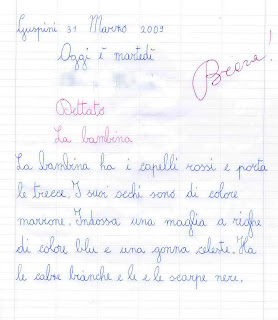 Guspini 31 Marzo 2009
Oggi è martedì
Brava!
Dettato
La bambina
La bambina ha i capelli rossi e porta
le trecce. I suoi occhi sono di colore
marrone. Indossa una maglia a righe
di colore blu e una gonna celeste. Ha
le calze bianche e le e le scarpe nere.